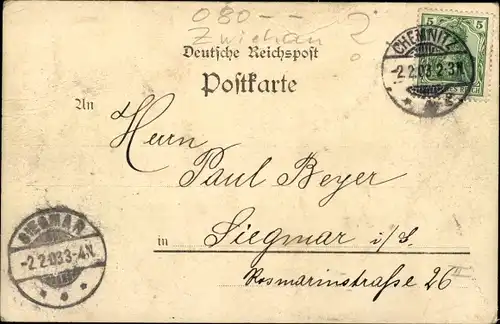 080--
Zwickau ?
Deutsche Reichspost
Postkarte
5 5
CHEMNITZ
-2.2.03 2-3N.
An
Herrn
Paul Beyer
in Siegmar i/S.
Rosmarinstraße 26 II
SIEGMAR
-2.2.03 3-4N.